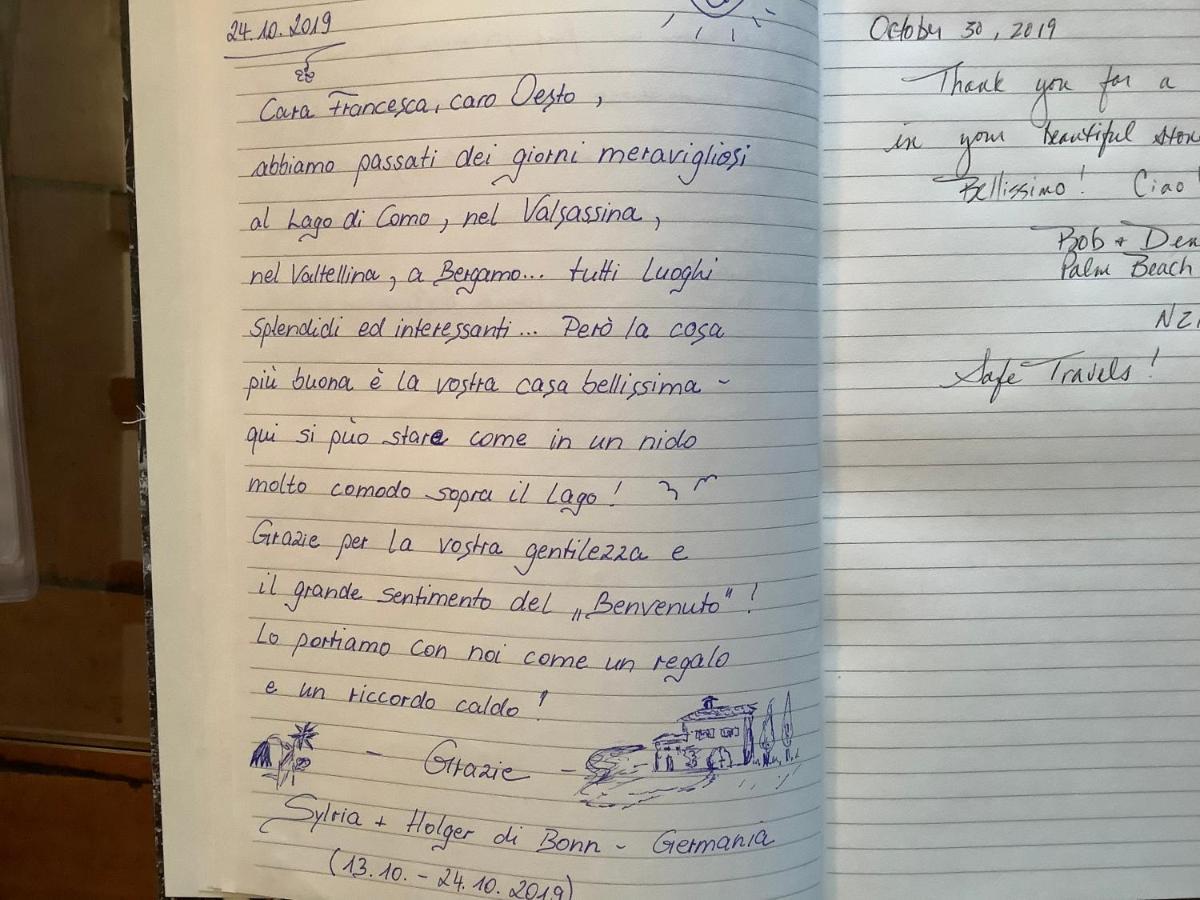 24.10.2019
Cara Francesca, caro Oesto,
abbiamo passati dei giorni meravigliosi
al Lago di Como, nel Valsassina,
nel Valtellina, a Bergamo... tutti luoghi
splendidi ed interessanti... Però la cosa
più buona è la vostra casa bellissima -
qui si può stare come in un nido
molto comodo sopra il lago!
Grazie per la vostra gentilezza e
il grande sentimento del „Benvenuto“!
Lo portiamo con noi come un regalo
e un riccordo caldo!
- Grazie -
Sylvia + Holger di Bonn - Germania
(13.10. - 24.10.2019)
October 30, 2019
Thank you for a
in your beautiful
Bellissimo! Ciao!
Bob +
Palm Beach
Safe Travels!